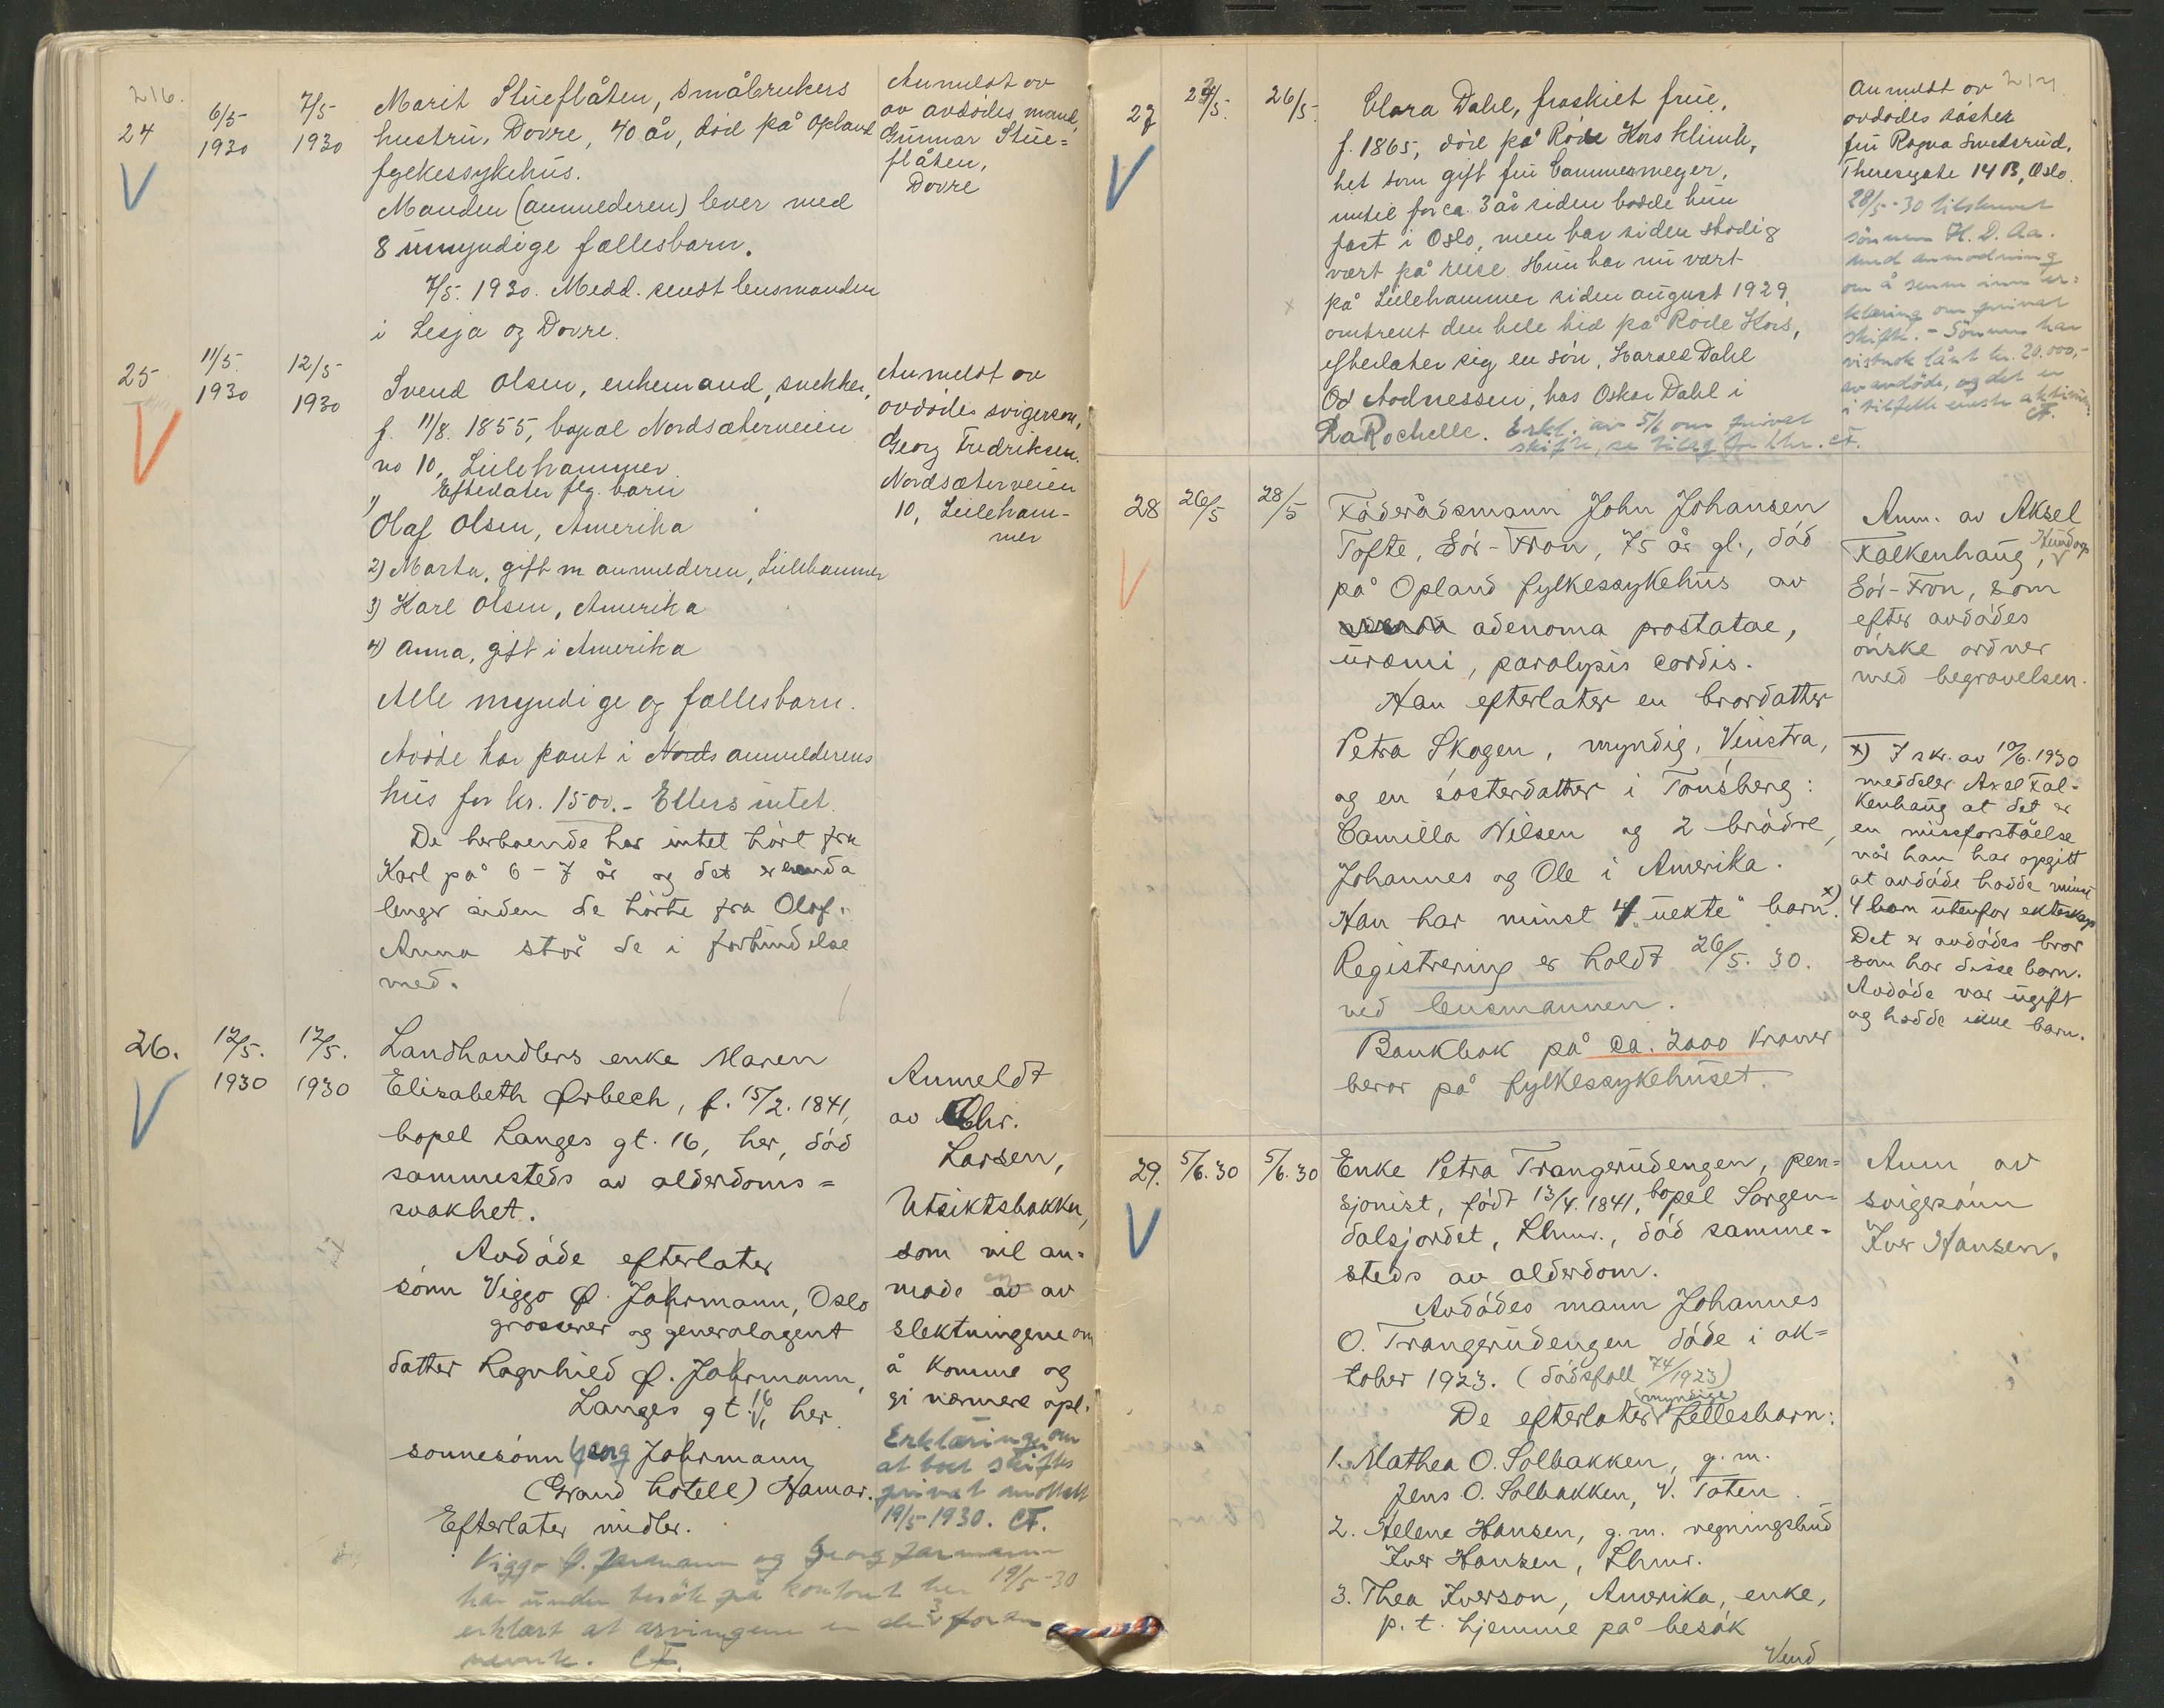 216.
24
6/5
1930
7/5
1930
Marit Stueflåten, småbrukers
hustru, Dovre, 40 år, död på Opland
fylkessykehus.
Manden (anmelderen) lever med
8 umyndige fællesbarn.
7/5. 1930. Medd. sendt lensmanden
i Lesja og Dovre.
Anmeldt av
av avdödes mand,
Gunnar Stue=
flåten,
Dovre
25
11/5
1930
12/5
1930
Svend Olsen, enkemand, snekker,
f. 11/8. 1855, bopæl Nordsæterveien
no 10, Lillehammer.
Efterlater flg. barn
1)
Olaf Olsen, Amerika
2) Marta, gift m anmelderen, Lillehammer
3) Karl Olsen, Amerika
4) Anna, gift i Amerika
Alle myndige og fællesbarn.
Avdöde har pant i Nords anmelderens
hus for kr. 1500.- Ellers intet.
De herboende har intet hört fra
Karl på 6-7 år og det er enda
lenger siden de hörte fra Olaf.
Anna står de i forbindelse
med.
Anmeldt av
avdödes svigersön,
Georg Fredriksen.
Nordsæterveien
10, Lilleham-
mer
26.
12/5.
1930
12/5.
1930
Landhandlers enke Maren
Elisabeth Ørbech, f. 15/2. 1841,
bopel Langes gt. 16, her, död
sammesteds av alderdoms=
svakhet.
Avdöde efterlater
sönn Viggo Ø. Jahrmann, Oslo
grosserer og generalagent
datter Ragnhild Ø. Jahrmann,
Langes gt. 16, her.
sonnesönn Georg Jahrmann
(Grand hotell) Hamar.
Efterlater midler.
Viggo Ø. Jarmann og Georg Jarmann
har under besök på kontoret her 19/5-30
erklært at arvingene er de 3 foran
nevnte. CF.
Anmeldt
av Chr.
Larsen,
Utsiktsbakken,
som vil an=
mode en av
slektningene om
å komme og
gi nærmere opl.
Erklæring om
at boet skiftes
privat mottatt
19/5-1930. CF.
27
24/5.
26/5.
Clara Dahl, fraskilt frue,
f. 1865, död på Röde Kors Klinik,
het som gift fru Cammermeyer,
inntil for ca. 3 år siden bodde hun
fast i Oslo, men har siden stadig
vært på reise. Hun har nu vært
på Lillehammer siden august 1929,
omtrent den hele tid på Röde Kors,
efterlater sig en sön, Harald Dahl
Aadnessen, hos Oskar Dahl i
La Rochelle. Erkl. av 5/6 om privat
skifte, se bilag for Lhr. CF.
Anmeldt av
avdödes söster
fru Ragna Smedsrud,
Theresgate 14 B, Oslo.
28/5-30 tilskrevet
sönnen H. D. Aa.
med anmodning
om å sende inn er=
klæring om privat
skifte. - Sönnen har
vistnok lånt kr. 20.000,-
av avdöde, og det er
i tilfelle eneste aktivum.
CF.
28
26/5
28/5
Föderådsmann John Johansen
Tofte, Sör-Fron, 75 år gl., död
på Opland fylkessykehus av
adenoma prostatae,
uræmi, paralysis cordis.
Han efterlater en brordatter
Petra Skogen, myndig, Vinstra,
og en sösterdatter i Tönsberg:
Camilla Nilsen og 2 brödre,
Johannes og Ole i Amerika.
Han har minst 4 "uekte" barn x).
Registrering er holdt 26/5. 30.
ved lensmannen.
Bankbok på ca. 2000 kroner
beror på fylkessykehuset.
Anm. av Aksel
Falkenhaug, Hundorp
Sör-Fron, som
efter avdödes
önske ordner
med begravelsen.
x) I skr. av 10/6. 1930
meddeler Axel Fal-
kenhaug at det er
en missforståelse
når han har opgitt
at avdöde hadde minst
4 barn utenfor ekteskap
Det er avdödes bror
som har disse barn.
Avdöde var ugift
og hadde ikke barn.
29.
5/6. 30
5/6. 30
Enke Petra Trangerudengen, pen=
sjonist, födt 13/4. 1841, bopel Sorgen=
dalsjordet, Lhmr., död samme=
steds av alderdom.
Avdödes mann Johannes
O. Trangerudengen döde i ok=
tober 1923. (dödsfall 74/1923)
De efterlater myndige fellesbarn:
1. Mathea O. Solbakken, g. m.
Jens O. Solbakken, V. Toten.
2. Helene Hansen, g. m. regningsbud
Iver Hansen, Lhmr.
3. Thea Iverson, Amerika, enke,
p. t. hjemme på besök
Vend
Anm av
svigersönn
Iver Hansen.